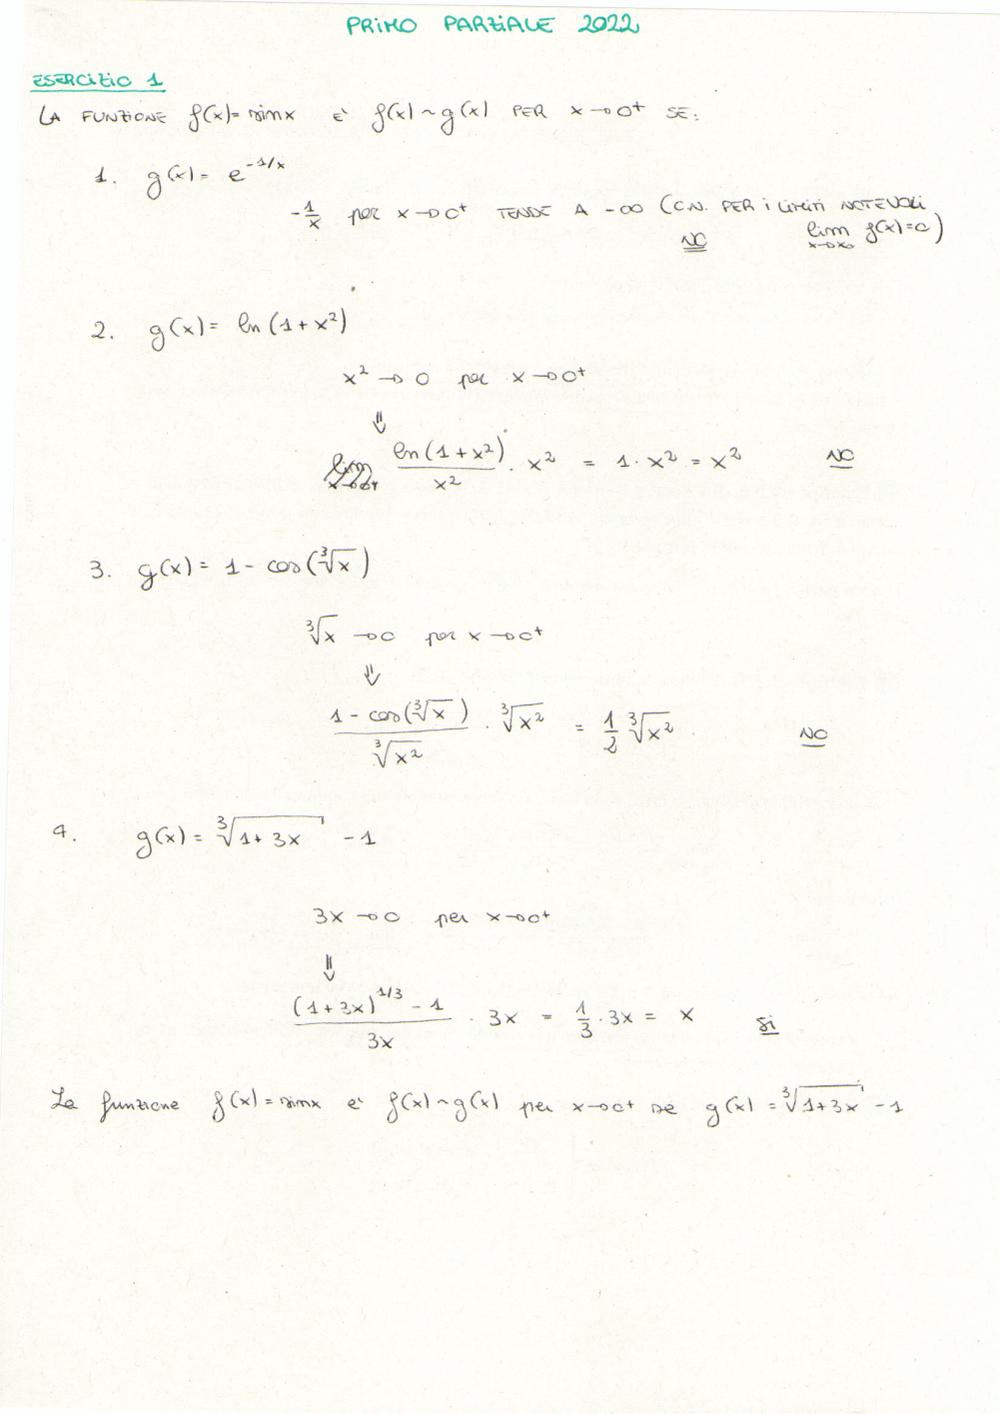 PRIMO PARZIALE 2022
ESERCIZIO 1
LA FUNZIONE f(x)= sinx E' f(x) ~ g(x) PER x→0⁺ SE:
1. g(x)= e^(-1/x)
-1/x per x→0⁺ TENDE A -∞ (C.N. PER i LIMITI NOTEVOLI
NO lim x→x₀ f(x)=0)
2. g(x)= ln(1+x²)
x² → 0 per x→0⁺
⇓
ln(1+x²)/x² · x² = 1·x² = x² NO
3. g(x)= 1 - cos(∛x)
∛x → 0 per x→0⁺
⇓
(1 - cos(∛x))/∛x² · ∛x² = 1/2 ∛x² NO
4. g(x)= ∛(1+3x) - 1
3x → 0 per x→0⁺
⇓
((1+3x)^(1/3) - 1)/3x · 3x = 1/3 · 3x = x si
La funzione f(x)= sinx e' f(x) ~ g(x) per x→0⁺ se g(x) = ∛(1+3x) - 1